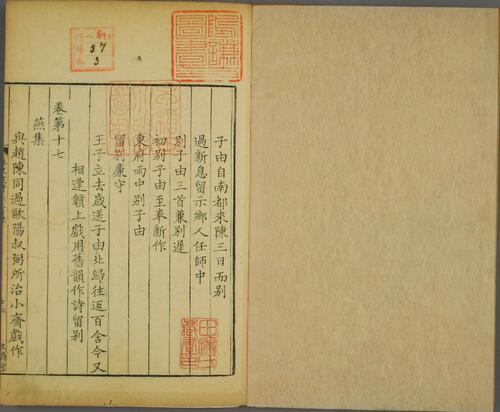 子由自南都來陳三日而別
過新息留示鄉人任師中
別子由三首兼別遲
初別子由至奉新作
東府雨中別子由
留別廉守
王子立去歲送子由北歸往返百舍今又
相逢贛上戲用舊韻作詩留別
卷第十七
燕集
與趙陳同過歐陽叔弼所治小齋戲作